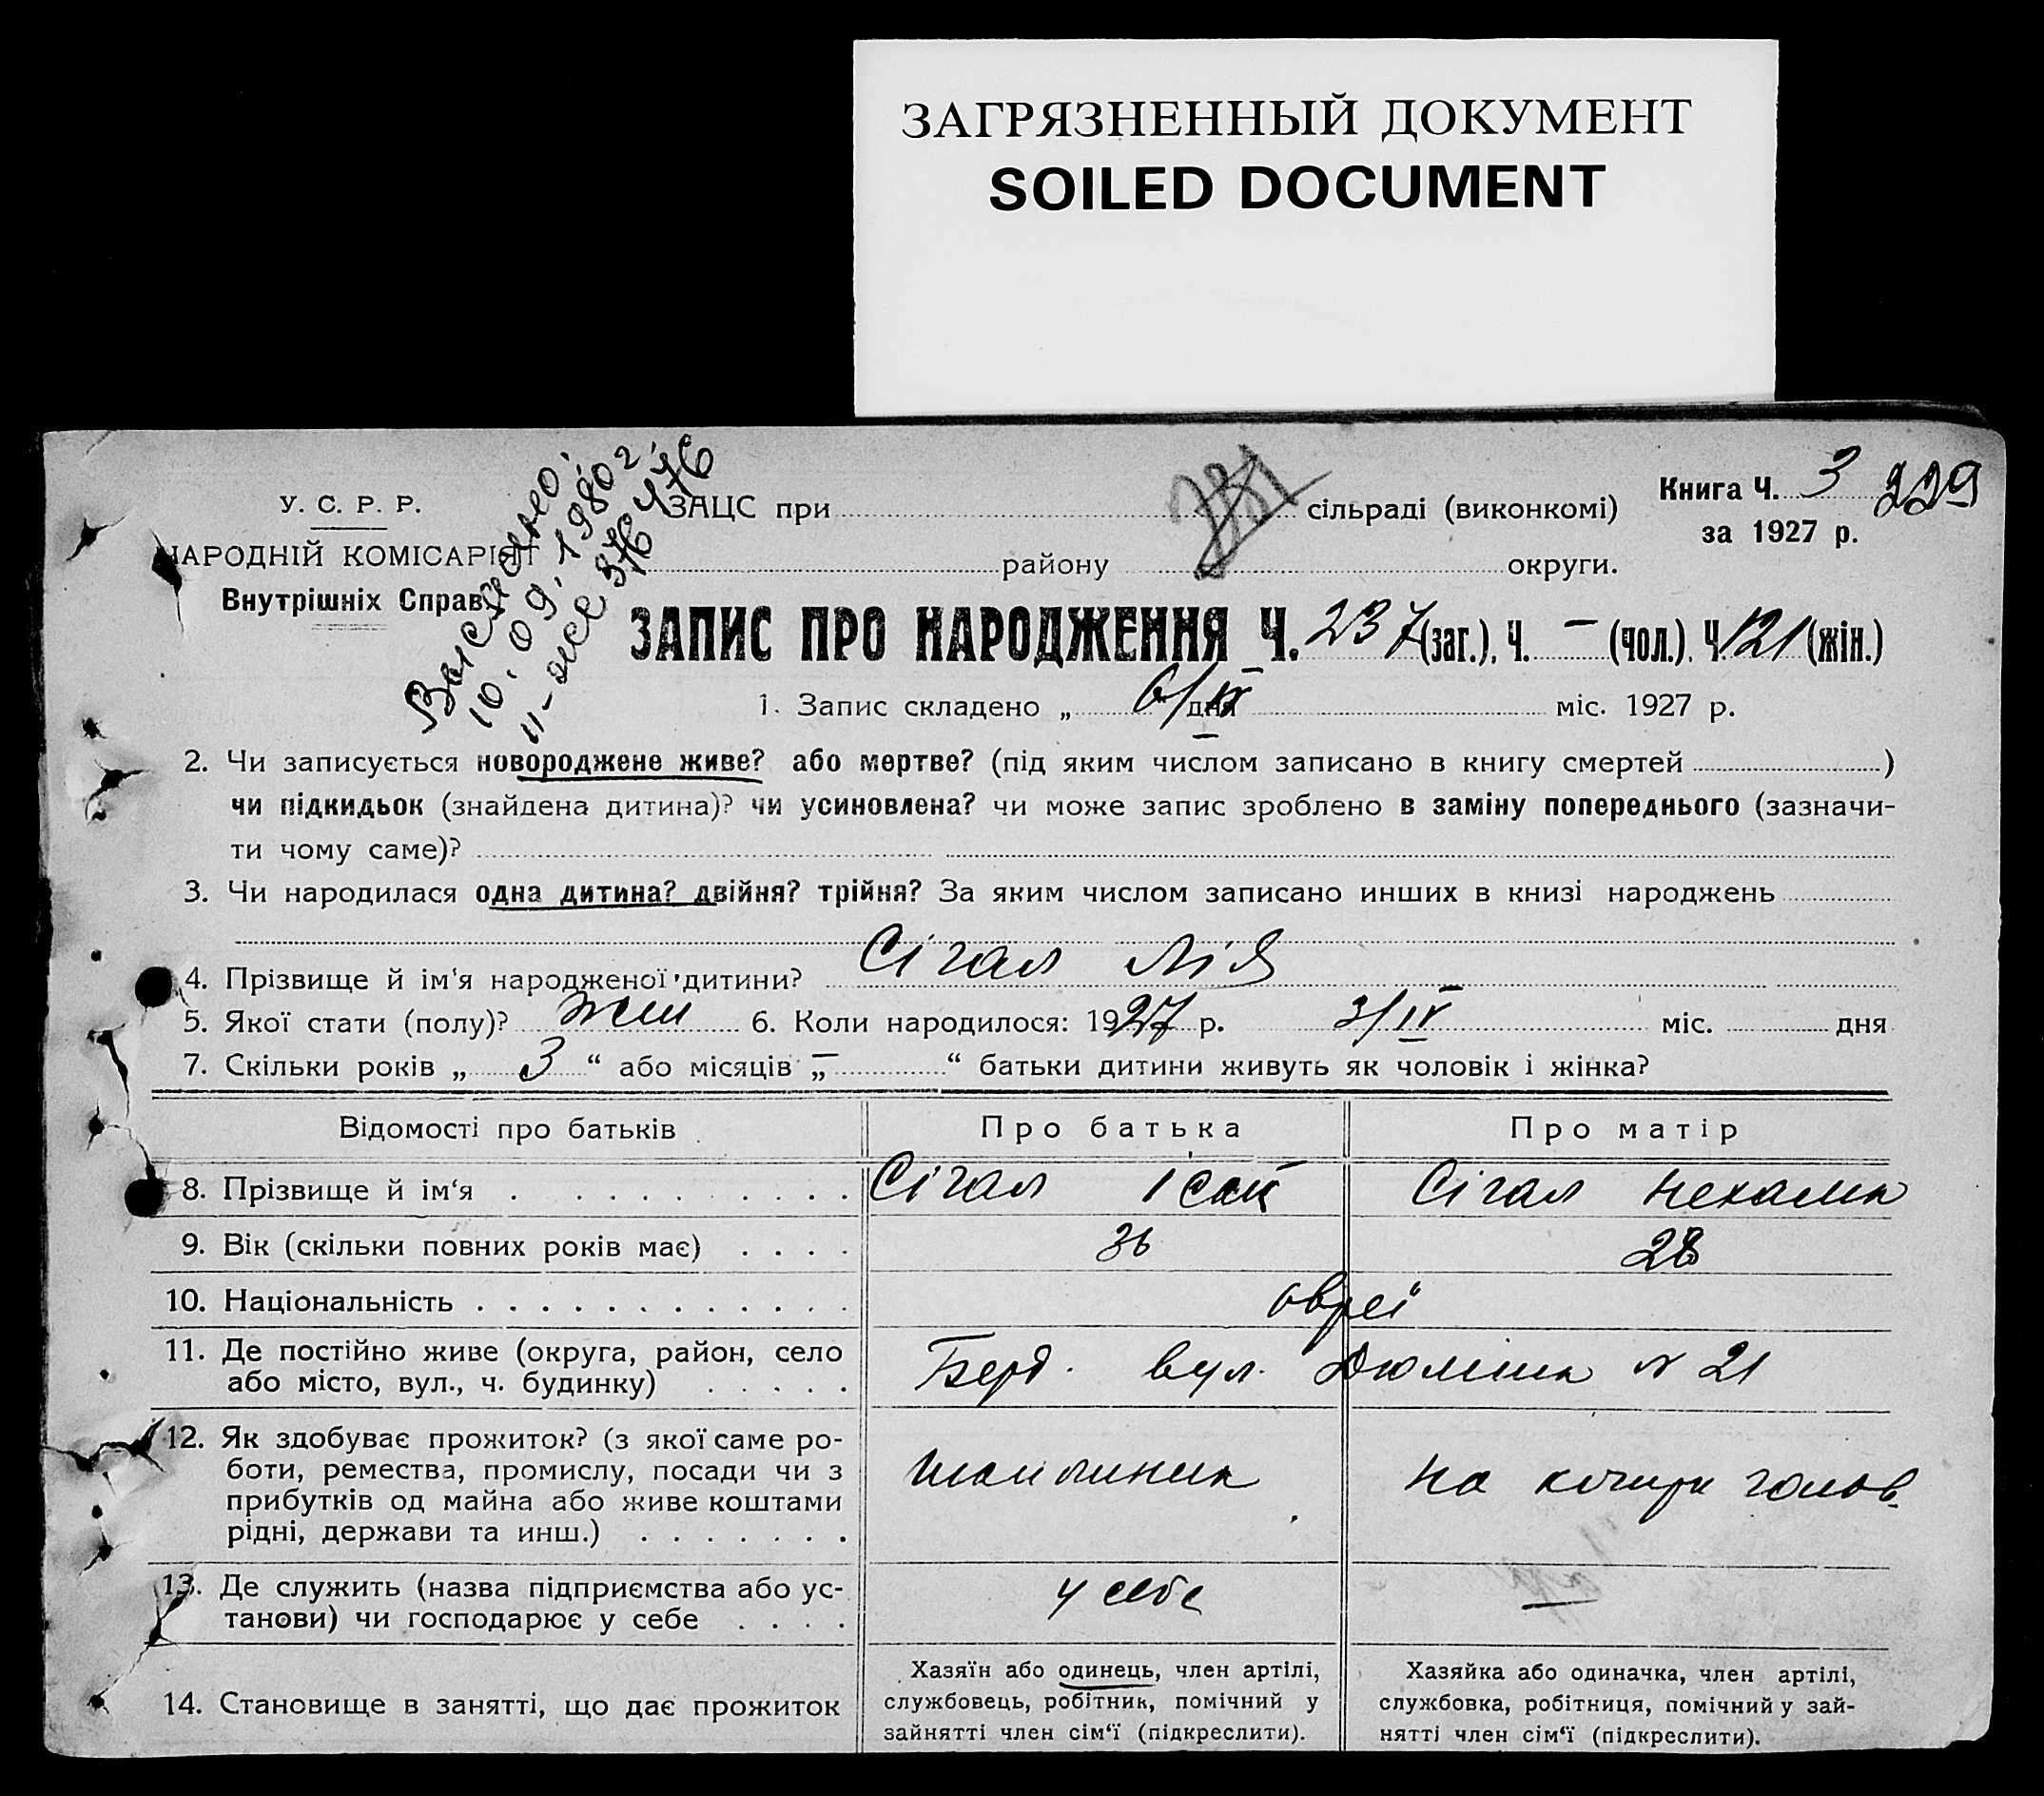 ЗАГРЯЗНЕННЫЙ ДОКУМЕНТ
SOILED DOCUMENT
У. С. Р. Р.
НАРОДНІЙ КОМІСАРІЯТ
Внутрішніх Справ
10.09.1980 г.
ЗАЦС при сільраді (виконкомі)
Книга Ч. 3 229
за 1927 р.
району округи.
ЗАПИС ПРО НАРОДЖЕННЯ Ч. 237 (заг.), Ч. — (чол.), Ч. 121 (жін.)
1. Запис складено „ 6/IV дня міс. 1927 р.
2. Чи записується новороджене живе? або мертве? (під яким числом записано в книгу смертей )
чи підкидьок (знайдена дитина)? чи усиновлена? чи може запис зроблено в заміну попереднього (зазначи-
ти чому саме)?
3. Чи народилася одна дитина? двійня? трійня? За яким числом записано инших в книзі народжень
4. Прізвище й ім‘я народженої дитини? Сігал Лія
5. Якої стати (полу)? жін 6. Коли народилося: 1927 р. 3/IV міс. дня
7. Скільки років „ 3 “ або місяців „ — “ батьки дитини живуть як чоловік і жінка?
Відомості про батьків Про батька Про матір
8. Прізвище й ім‘я Сігал Ісак Сігал Нехама
9. Вік (скільки повних років має) 36 28
10. Національність євреї
11. Де постійно живе (округа, район, село
або місто, вул., ч. будинку) Берд. вул. № 21
12. Як здобуває прожиток? (з якої саме ро-
боти, ремества, промислу, посади чи з
прибутків од майна або живе коштами
рідні, держави та инш.) На голов.
13. Де служить (назва підприємства або ус-
танови) чи господарює у себе у себе —
14. Становище в занятті, що дає прожиток
Хазяїн або одинець, член артілі,
службовець, робітник, помічний у
зайнятті член сім‘ї (підкреслити).
Хазяйка або одиначка, член артілі,
службовка, робітниця, помічний у зай-
нятті член сім‘ї (підкреслити).